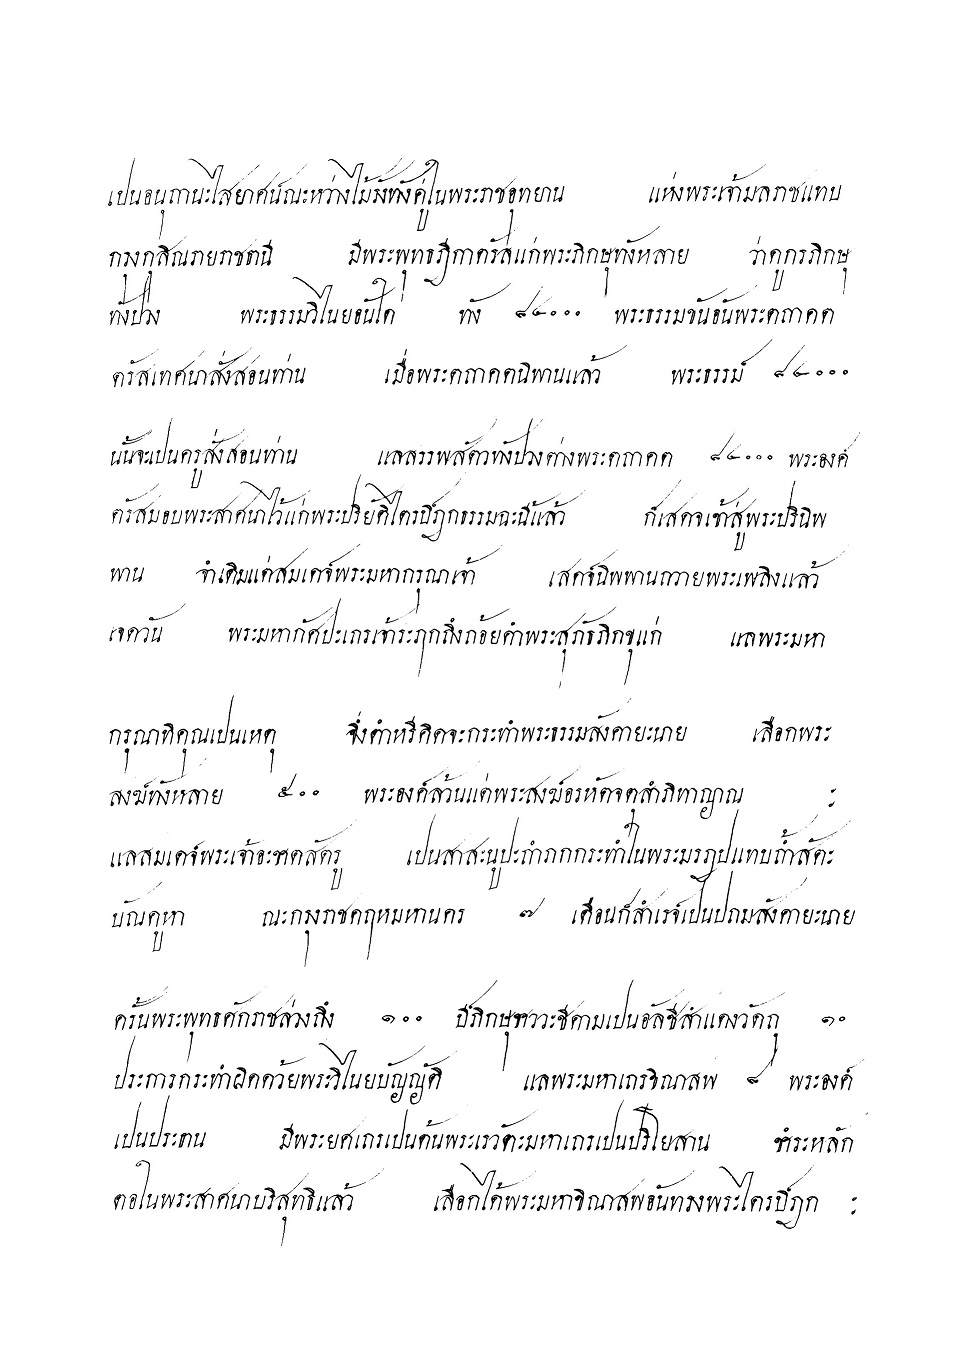 เปนอนุถานะไสยาศน์ณะหว่างไม้รังทังคู่ในพระราชอุทยาน แห่งพระเจ้ามลราชแทบ
กรุงกุสินรายราชธานี มีพระพุทธฎีกาตรัสแก่พระภิกษุทังหลาย ว่าดูกรภิกษุ
ทังปวง พระธรรมวิไนยอันใด ทัง ๘๔๐๐๐ พระธรรมขันอันพระตถาคต
ตรัสเทศนาสั่งสอนท่าน เมื่อพระตถาคตนิพานแล้ว พระธรรม์ ๘๔๐๐๐
นั้นจะเปนครูสั่งสอนท่าน แลสรรพสัตวทังปวงต่างพระตถาคต ๘๔๐๐๐ พระองค์
ตรัสมอบพระสาศนาไว้แก่พระปริยัติไตรปิฎกธรรมฉะนี้แล้ว ก็เสดจเข้าสู่พระปรินิพ
พาน จำเดิมแต่สมเดจ์พระมหากรุณาเจ้า เสดจ์นิพพานถวายพระเพลิงแล้ว
เจดวัน พระมหากัศปะเถรเจ้าระฦกถึงถ้อยคำพระสุภัธภิกขุแก่ แลพระมหา
กรุณาทิคุณเปนเหตุ จึ่งดำหรีคิดจะกระทำพระธรรมสังคายะนาย เลือกพระ
สงฆ์ทังหลาย ๕๐๐ พระองค์ล้วนแต่พระสงฆ์อรหัตจตุสำภิทาญาณ ะ
แลสมเดจ์พระเจ้าอะชาตสัตรู เปนสาสะนูปะถำภกกระทำในพระมรฎปแทบถ้ำสัตะ
บัณคูหา ณะกรุงราชคฤหมหานคร ๗ เดือนก็สำเรจ์เปนปถมสังคายะนาย
ครั้นพระพุทธศักราชล่วงถึง ๑๐๐ ปีภิกษุชาววะชีคามเปนอัลชีสำแดงวัตถุ ๑๐
ประการกระทำผิดด้วยพระวิไนยบัญญัติ แลพระมหาเถรขิณาสพ ๘ พระองค์
เปนประธาน มีพระยศเถรเปนต้นพระเรวัตะมหาเถรเปนปริโยสาน ชำระหลัก
ตอในพระสาศนาบริสุทธิแล้ว เลือกได้พระมหาขิณาสพอันทรงพระไตรปิฎก ะ